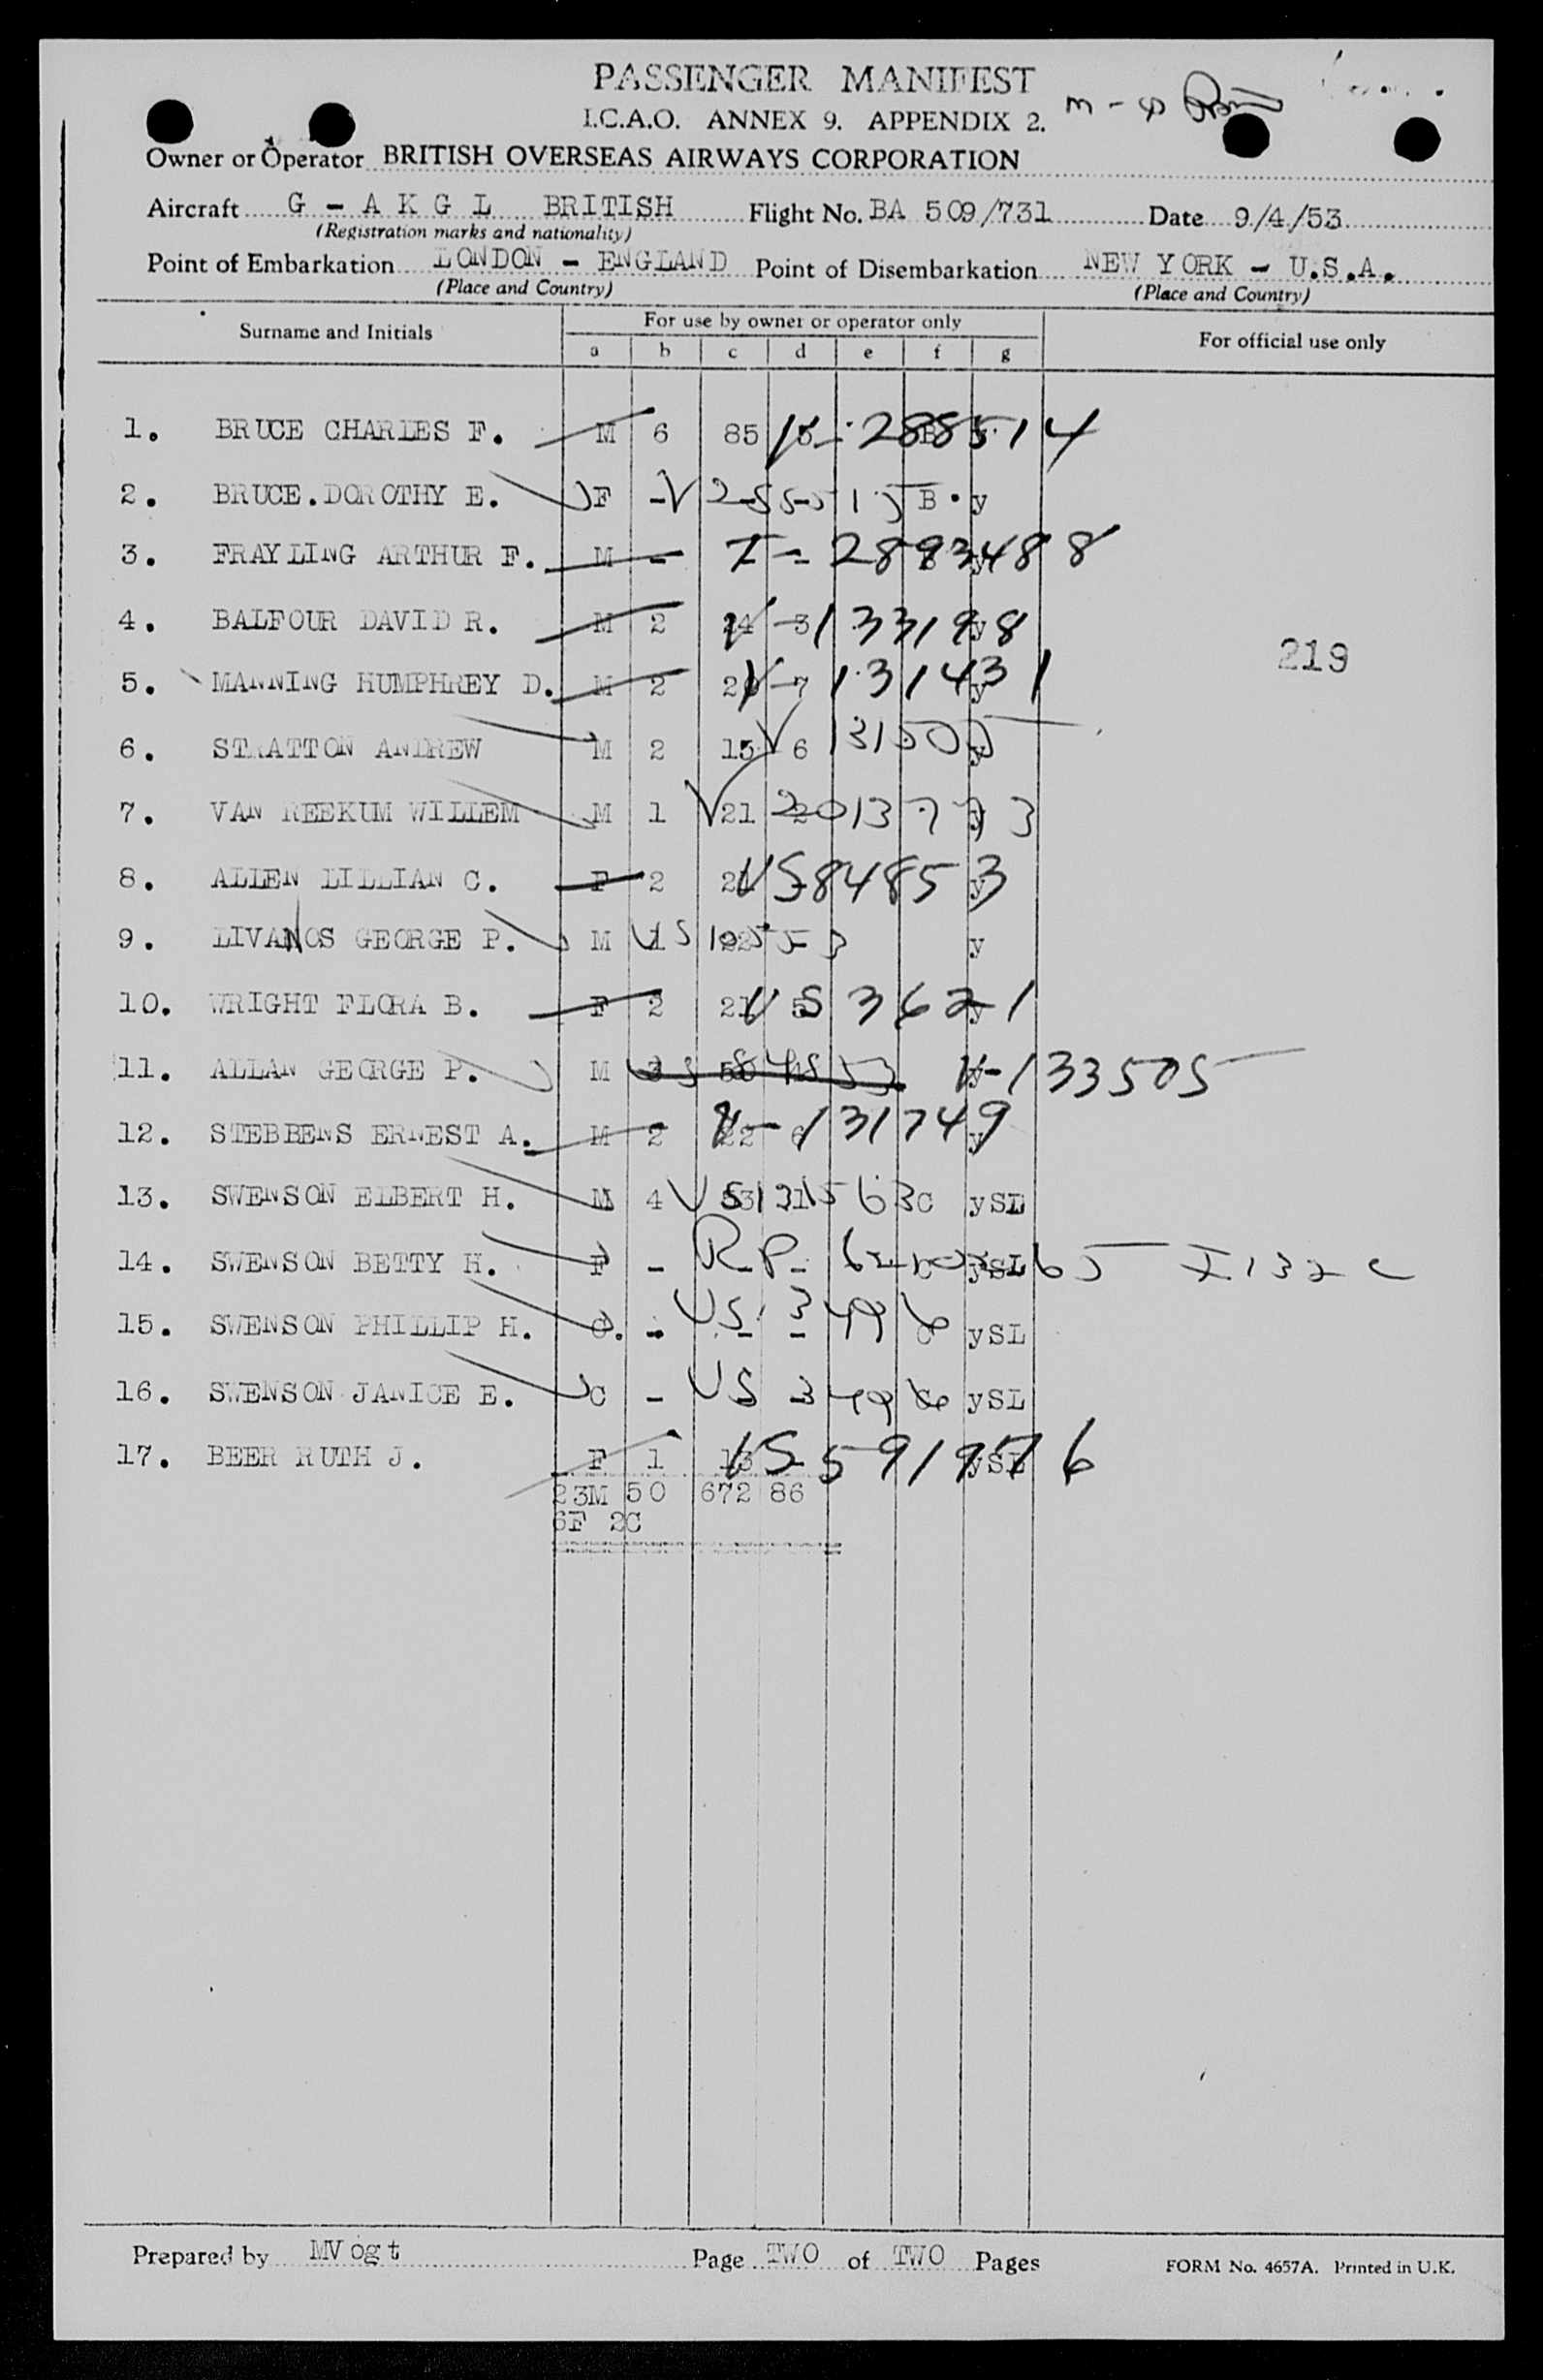 PASSENGER MANIFEST
I.C.A.O. ANNEX 9. APPENDIX 2.
Owner or Operator BRITISH OVERSEAS AIRWAYS CORPORATION
Aircraft G - A K G L BRITISH Flight No. BA 509/731 Date 9/4/53
(Registration marks and nationality)
Point of Embarkation LONDON - ENGLAND Point of Disembarkation NEW YORK - U.S.A.
(Place and Country) (Place and Country)
Surname and Initials For use by owner or operator only For official use only
a b c d e f g
1. BRUCE CHARLES F. M 6 85 V-288514
2. BRUCE.DOROTHY E. F - B y
3. FRAYLING ARTHUR F. M - I - 2893488
4. BALFOUR DAVID R. M 2 24 3 V-133198 y
219
5. MANNING HUMPHREY D. M 2 7 V-131431 y
6. STRATTON ANDREW M 2 15 6 V 131505 y
7. VAN REEKUM WILLEM M 1 21 V 2013773
8. ALLEN LILLIAN C. F 2 US 84853 y
9. LIVANOS GEORGE P. M 1 US y
10. WRIGHT FLORA B. F 2 21 5 US 3621 y
11. ALLAN GEORGE P. M 3 50 US 84853 V-133505
12. STEBBENS ERNEST A. M 2 22 6 V-131749 y
13. SWENSON ELBERT H. M 4 53 US C ySL
14. SWENSON BETTY H. F - - - R.P. C ySL I 132 c
15. SWENSON PHILLIP H. C. - - - US 3496 C ySL
16. SWENSON JANICE E. C - - - US 3496 C ySL
17. BEER RUTH J. F 1 13 - US 591976 ySL
23M 50 672 86
6F 2C
Prepared by MVogt Page TWO of TWO Pages FORM No. 4657A. Printed in U.K.